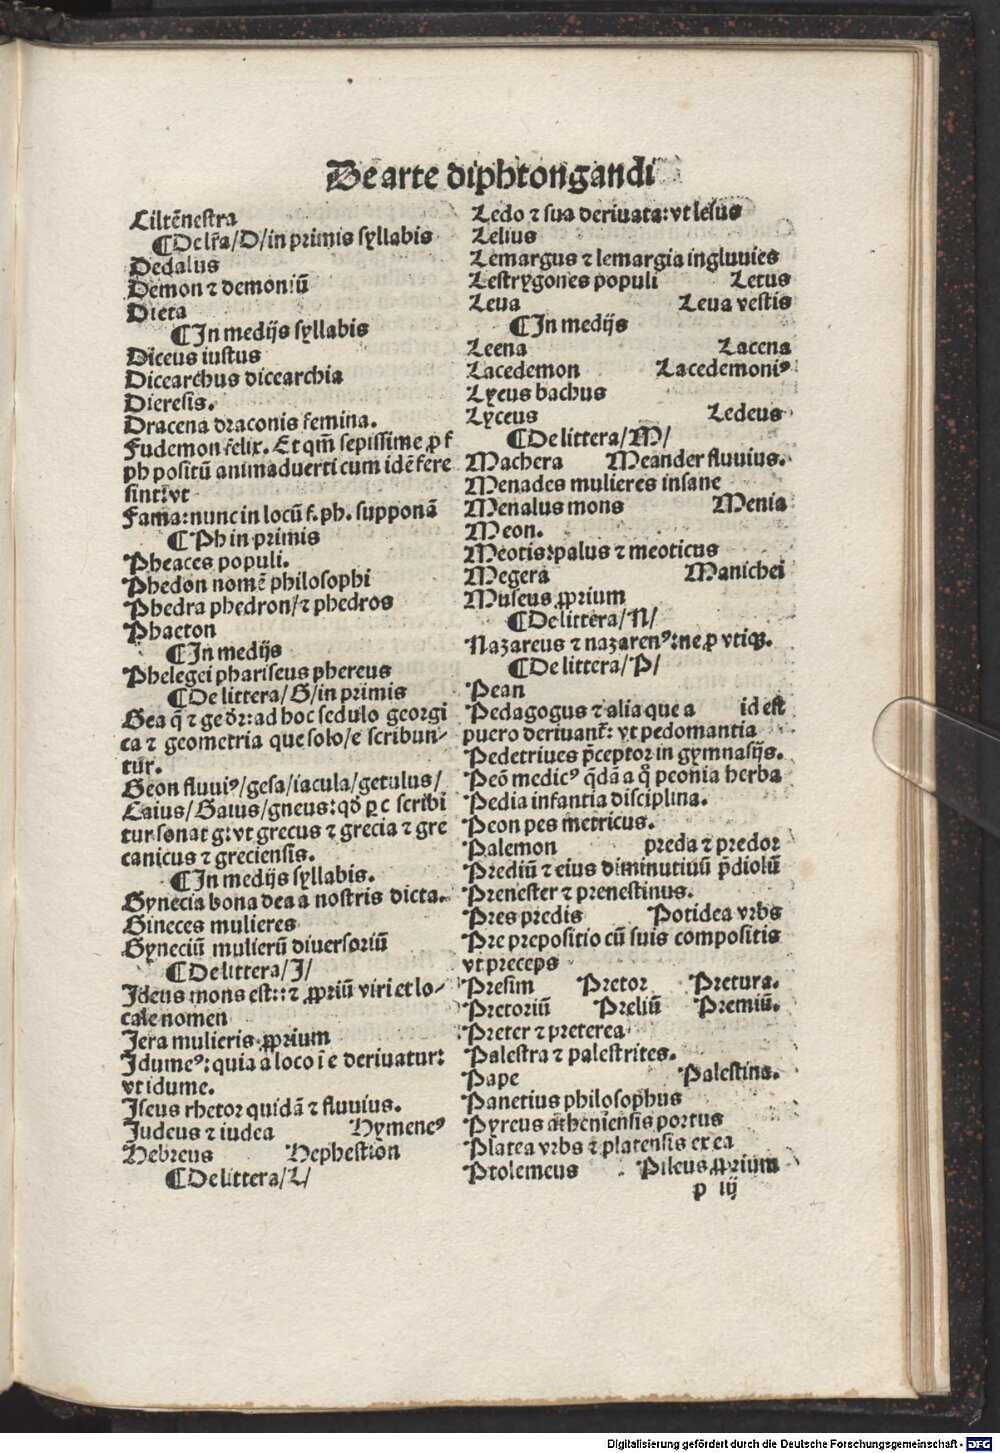 De arte diphtongandi
Liltēnestra
¶De lr̄a/D/in primis syllabis
Dedalus
Demon ⁊ demoniū
Dieta
¶In medijs syllabis
Diceus iustus
Dicearchus dicearchia
Dieresis.
Dracena draconis femina.
Fudemon felix. Et qm̄ sepissime ꝓ f
ph positū animaduerti cum idē fere
sint:vt
Fama:nunc in locū f. ph. supponā
¶Ph in primis
Pheaces populi.
Phedon nomē philosophi
Phedra phedron/⁊ phedros
Phaeton
¶In medijs
Phelegei phariseus phereus
¶De littera/G/in primis
Gea q̄ ⁊ ge dr̄:ad hoc sedulo georgi
ca ⁊ geometria que solo/e scribun-
tur.
Geon fluuiꝰ/gesa/iacula/getulus/
Caius/Gaius/gneus:qd̄ ꝑ c scribi
tur sonat g:vt grecus ⁊ grecia ⁊ gre
canicus ⁊ greciensis.
¶In medijs syllabis.
Gynecia bona dea a nostris dicta.
Gineces mulieres
Gyneciū mulierū diuersoriū
¶De littera/I/
Ideus mons est:⁊ ꝓpriū viri et lo-
cale nomen
Iera mulieris ꝓprium
Idumeꝰ:quia a loco ī e deriuatur:
vt idume.
Iseus rhetor quidā ⁊ fluuius.
Iudeus ⁊ iudea Hymeneꝰ
Hebreus Hephestion
¶De littera/L/
Ledo ⁊ sua deriuata:vt lesus
Lelius
Lemargus ⁊ lemargia ingluuies
Lestrygones populi Letus
Leua Leua vestis
¶In medijs
Leena Lacena
Lacedemon Lacedemoniꝰ
Lyeus bachus
Lyceus Ledeus
¶De littera/M/
Machera Meander fluuius.
Menades mulieres insane
Menalus mons Menia
Meon.
Meotis:palus ⁊ meoticus
Megera Manichei
Museus ꝓprium
¶De littera/N/
Nazareus ⁊ nazarenꝰ:ne ꝓ vtiqꝫ.
¶De littera/P/
Pean
Pedagogus ⁊ alia que a id est
puero deriuant̄: vt pedomantia
Pedetriues p̄ceptor in gymnasijs.
Peō medicꝰ q̄dā a q̊ peonia herba
Pedia infantia disciplina.
Peon pes metricus.
Palemon preda ⁊ predor
Prediū ⁊ eius diminutiuū p̄diolū
Prenester ⁊ prenestinus.
Pres predis Potidea vrbs
Pre prepositio cū suis compositis
vt preceps
Presim Pretor Pretura.
Pretoriū Preliū Premiū.
Preter ⁊ preterea
Palestra ⁊ palestrites.
Pape Palestina.
Panetius philosophus
Pyreus atheniensis portus
Platea vrbs ⁊ platensis ex ea
Ptolemeus Pileus ꝓprium
p iij
Digitalisierung gefördert durch die Deutsche Forschungsgemeinschaft - DFG